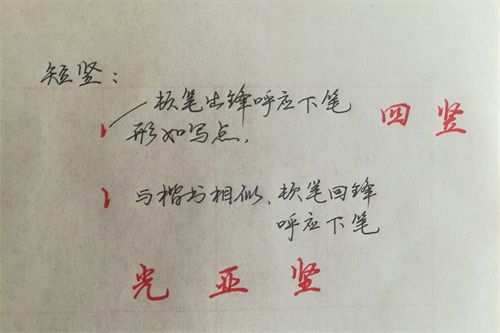 短竖：
顿笔出锋呼应下笔
形如写点，
四 竖
与楷书相似，顿笔回锋
呼应下笔
光 亚 竖